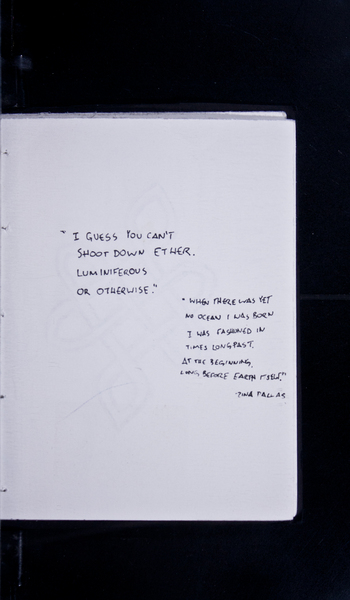 "I GUESS YOU CAN'T
SHOOT DOWN ETHER,
LUMINIFEROUS
OR OTHERWISE."
"WHEN THERE WAS YET
NO OCEAN I WAS BORN
I WAS FASHIONED IN
TIMES LONG PAST,
AT THE BEGINNING,
LONG BEFORE EARTH ITSELF."
TINA PALLAS